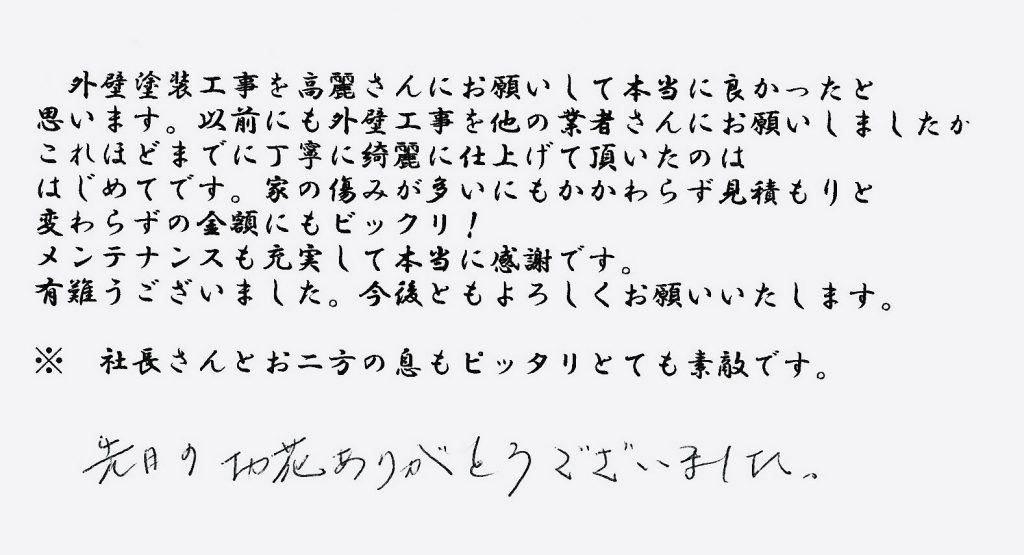 外壁塗装工事を高麗さんにお願いして本当に良かったと
思います。以前にも外壁工事を他の業者さんにお願いしましたが
これほどまでに丁寧に綺麗に仕上げて頂いたのは
はじめてです。家の傷みが多いにもかかわらず見積もりと
変わらずの金額にもビックリ!
メンテナンスも充実して本当に感謝です。
有難うございました。今後ともよろしくお願いいたします。
※ 社長さんとお二方の息もピッタリとても素敵です。
先日の切花ありがとうございました。